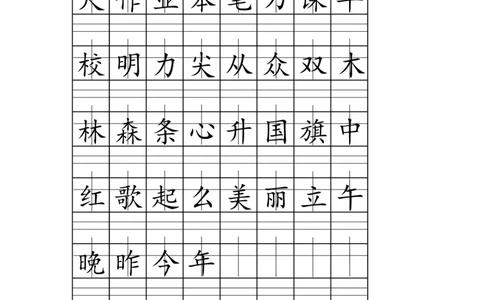 作业本笔刀课午
校明力尖从众双木
林森条心升国旗中
红歌起么美丽立午
晚昨今年